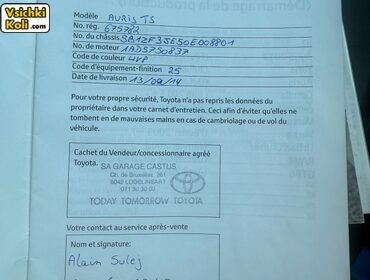 Vsichki
Koli.com
Modèle AURIS TS
No. rég. 675782
No. du châssis
No. de moteur
Code de couleur
Code d'équipement-finition 25
Date de livraison 13/09/14
Pour votre propre sécurité, Toyota n'a pas repris les données du
propriétaire dans votre carnet d'entretien. Ceci afin d'éviter qu'elles ne
tombent en de mauvaises mains en cas de cambriolage ou de vol du
véhicule.
Cachet du Vendeur/concessionnaire agréé
Toyota.
SA GARAGE CASTUS
Ch. de Bruxelles 261
6042 LODELINSART
071
TOYOTA
TODAY TOMORROW TOYOTA
Votre contact au service après-vente
Nom et signature:
Alain